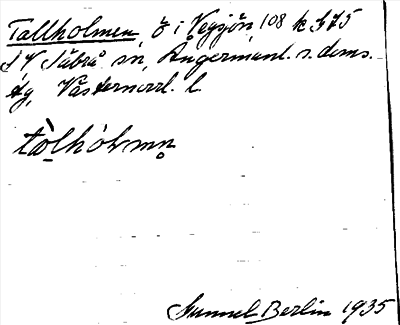 Tallholmen, ö i Vegsjön, 108 k 375
I V Säbrå sn, Ångermanl. s. doms.
tg, Västernorrl. l.
Gunnel Berlin 1935